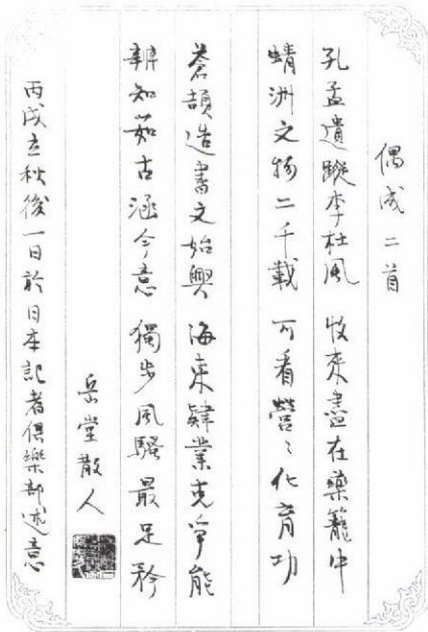 偶成二首
孔孟遺蹤李杜風 收來盡在藥籠中
蜻洲文物二千載 可看營〻化育功
蒼頡造書文始興 海東肄業克爭能
辨知茹古涵今意 獨步風騷最足矜
岳堂散人
丙戌立秋後一日於日本記者俱樂部述意